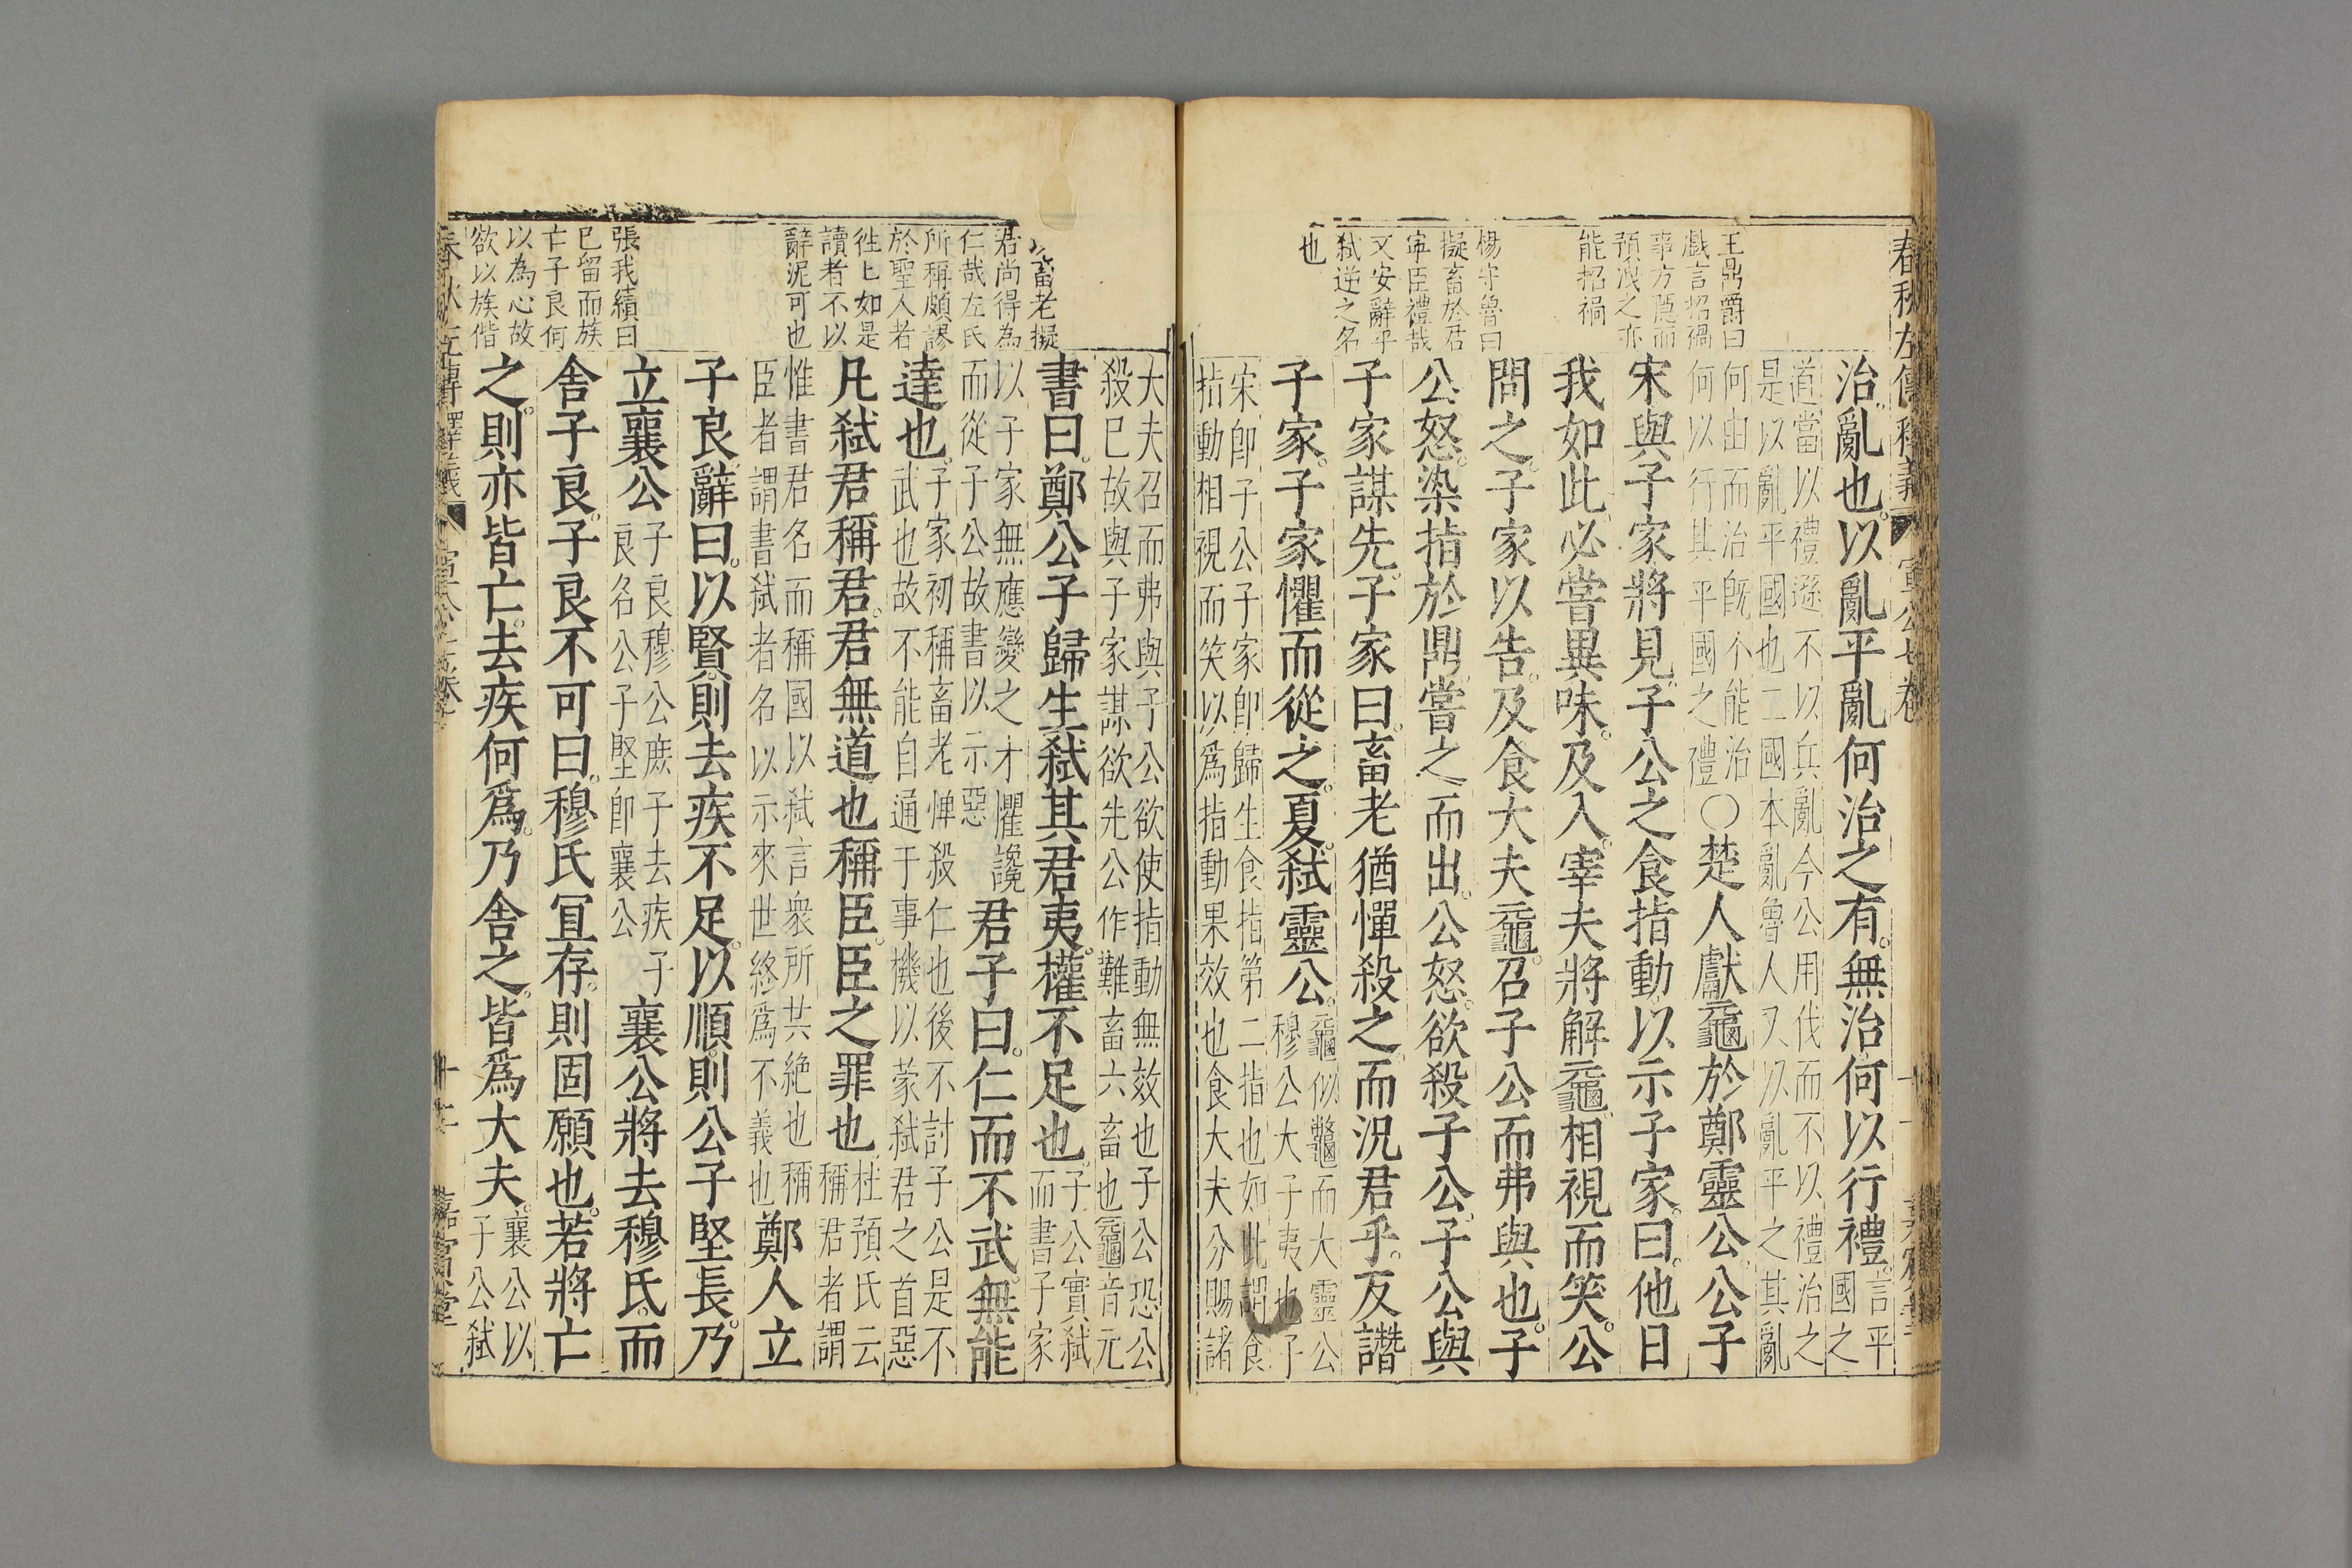 王鼎爵曰
戯言招禍
事方隱而
預洩之亦
能招禍
楊守魯曰
擬畜於君
寧臣禮哉
又安辭乎
弑逆之名
也
治亂也以亂平亂何治之有無治何以行禮言平
國之
道當以禮遜不以兵亂今公用伐而不以禮治之
是以亂平國也二國本亂魯人又以亂平之其亂
何由而治旣不能治
何以行其平國之禮〇楚人獻黿於鄭靈公公子
宋與子家將見子公之食指動以示子家曰他日
我如此必嘗異味及入宰夫將解黿相視而笑公
問之子家以告及食大夫黿召子公而弗與也子
公怒染指於鼎嘗之而出公怒欲殺子公子公與
子家謀先子家曰畜老猶憚殺之而況君乎反譖
子家子家懼而從之夏弑靈公黿似鼈而大靈公
穆公大子夷也子
宋卽子公子家卽歸生食指第二指也如此謂食
指動相視而笑以爲指動果效也食大夫分賜諸
畜老擬
君尚得為
仁哉左氏
所稱頗謬
於聖人者
徃匕如是
讀者不以
辭泥可也
張我續曰
已留而族
亡子良何
以為心故
欲以族偕
大夫召而弗與子公欲使指動無效也子公恐公
殺巳故與子家謀欲先公作難畜六畜也黿音元
書曰鄭公子歸生弑其君夷權不足也子公實弑
而書子家
以子家無應變之才懼讒
而從子公故書以示惡君子曰仁而不武無能
達也子家初稱畜老憚殺仁也後不討子公是不
武也故不能自通于事機以蒙弑君之首惡
凡弑君稱君君無道也稱臣臣之罪也杜預氏云
稱君者謂
惟書君名而稱國以弑言衆所共絶也稱
臣者謂書弑者名以示來世終爲不義也鄭人立
子良辭曰以賢則去疾不足以順則公子堅長乃
立襄公子良穆公庶子去疾子
良名公子堅卽襄公襄公將去穆氏而
舍子良子良不可曰穆氏冝存則固願也若將亡
之則亦皆亡去疾何爲乃舍之皆爲大夫襄公以
子公弑